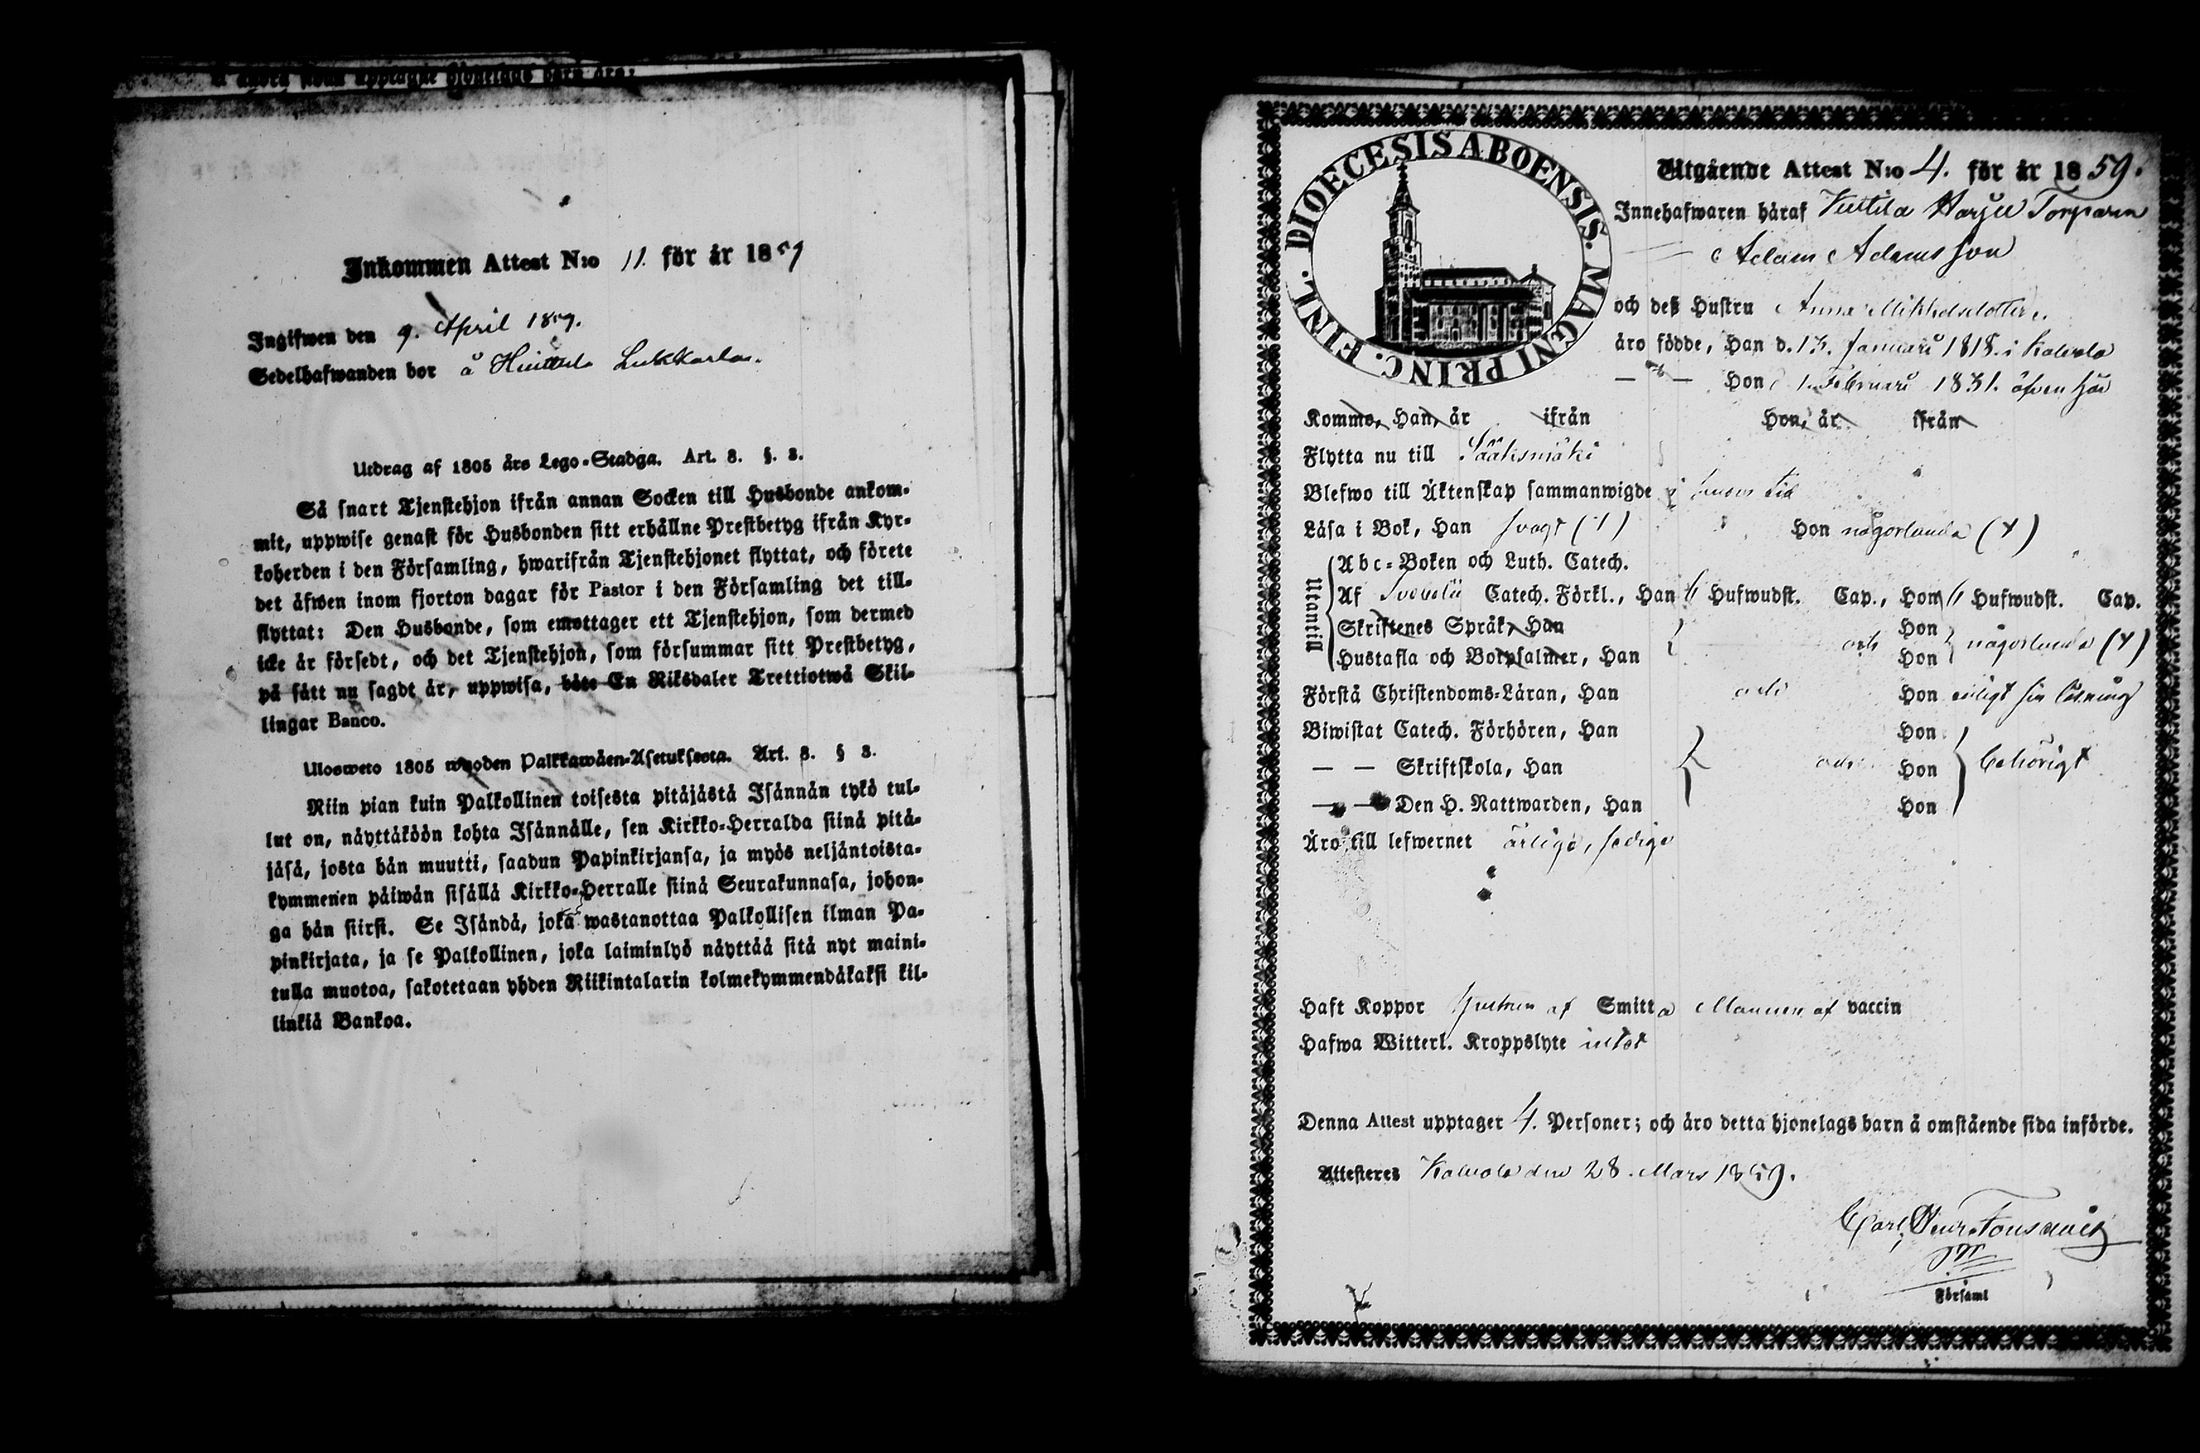 Inkommen Attest N:o 11. för år 1859
Ingifwen den 9. April 1859.
Sedelhafwanden bor å Hinttala Lukkarla.
Utdrag af 1805 års Lego-Stadga. Art. 8. §. 3.
Så snart Tjenstehjon ifrån annan Socken till Husbonde ankom-
mit, uppwise genast för Husbonden sitt erhållne Prestbetyg ifrån Kyr-
koherden i den Församling, hwarifrån Tjenstehjonet flyttat, och förete
det äfwen inom fjorton dagar för Pastor i den Församling det till-
flyttat: Den Husbonde, som emottager ett Tjenstehjon, som dermed
icke är försedt, och det Tjenstehjon, som försummar sitt Prestbetyg,
på sätt nu sagdt är, uppwisa, böte En Riksdaler Trettiotwå Skil-
lingar Banco.
Ulosweto 1805 wuoden Palkkawäen-Asetuksesta. Art. 8. § 3.
Niin pian kuin Palkollinen toisesta pitäjästä Isännän tykö tul-
lut on, näyttäköön kohta Isännälle, sen Kirkko-Herralda siinä pitä-
jäsä, josta hän muutti, saadun Papinkirjansa, ja myös neljäntoista-
kymmenen päiwän sisällä Kirkko-Herralle siinä Seurakunnasa, johon-
ga hän siirsi. Se Isändä, joka wastanottaa Palkollisen ilman Pa-
pinkirjata, ja se Palkollinen, joka laiminlyö näyttää sitä nyt maini-
tulla muotoa, sakotetaan yhden Riikintalarin kolmekymmendäkaksi kil-
linkiä Bankoa.
DIOECESIS ABOENSIS. MAGNI PRINC. FINL.
Utgående Attest N:o 4. för år 1859.
Innehafwaren häraf Kuttila Harju Torparen
Adam Adamsson
och deß Hustru Anna Mikkelsdotter
äro födde, Han d. 13. Januari 1818. i Kalvola
— — Hon d 1. Februari 1831. äfven här
Komme, Han, år ifrån Hon, år ifrån
Flytta nu till Sääksmäki
Blefwo till Äktenskap sammanwigde i tid
Läsa i Bok, Han svagt (1) Hon någorlunda (+)
Utantill
Abc-Boken och Luth. Catech.
Af Svebelii Catech. Förkl., Han 6 Hufwudst. Cap., Hon 6 Hufwudst. Cap.
Skriftenes Språk, Han Hon
Hustafla och Botpsalmer, Han och Hon någorlunda (+)
Förstå Christendoms-Läran, Han och Hon enligt sin läsning
Biwistat Catech. Förhören, Han Hon
— — Skriftskola, Han och Hon behörigt
— — Den H. Nattwarden, Han Hon
Äro till lefwernet ärlige, sedige
Haft Koppor Hustrun af Smitta Mannen af vaccin
Hafwa Witterl. Kroppslyte intet
Denna Attest upptager 4. Personer; och äro detta hjonelags barn å omstående sida införde.
Attesteras Kalvola den 28. Mars 1859.
Carl Henr.
Församl